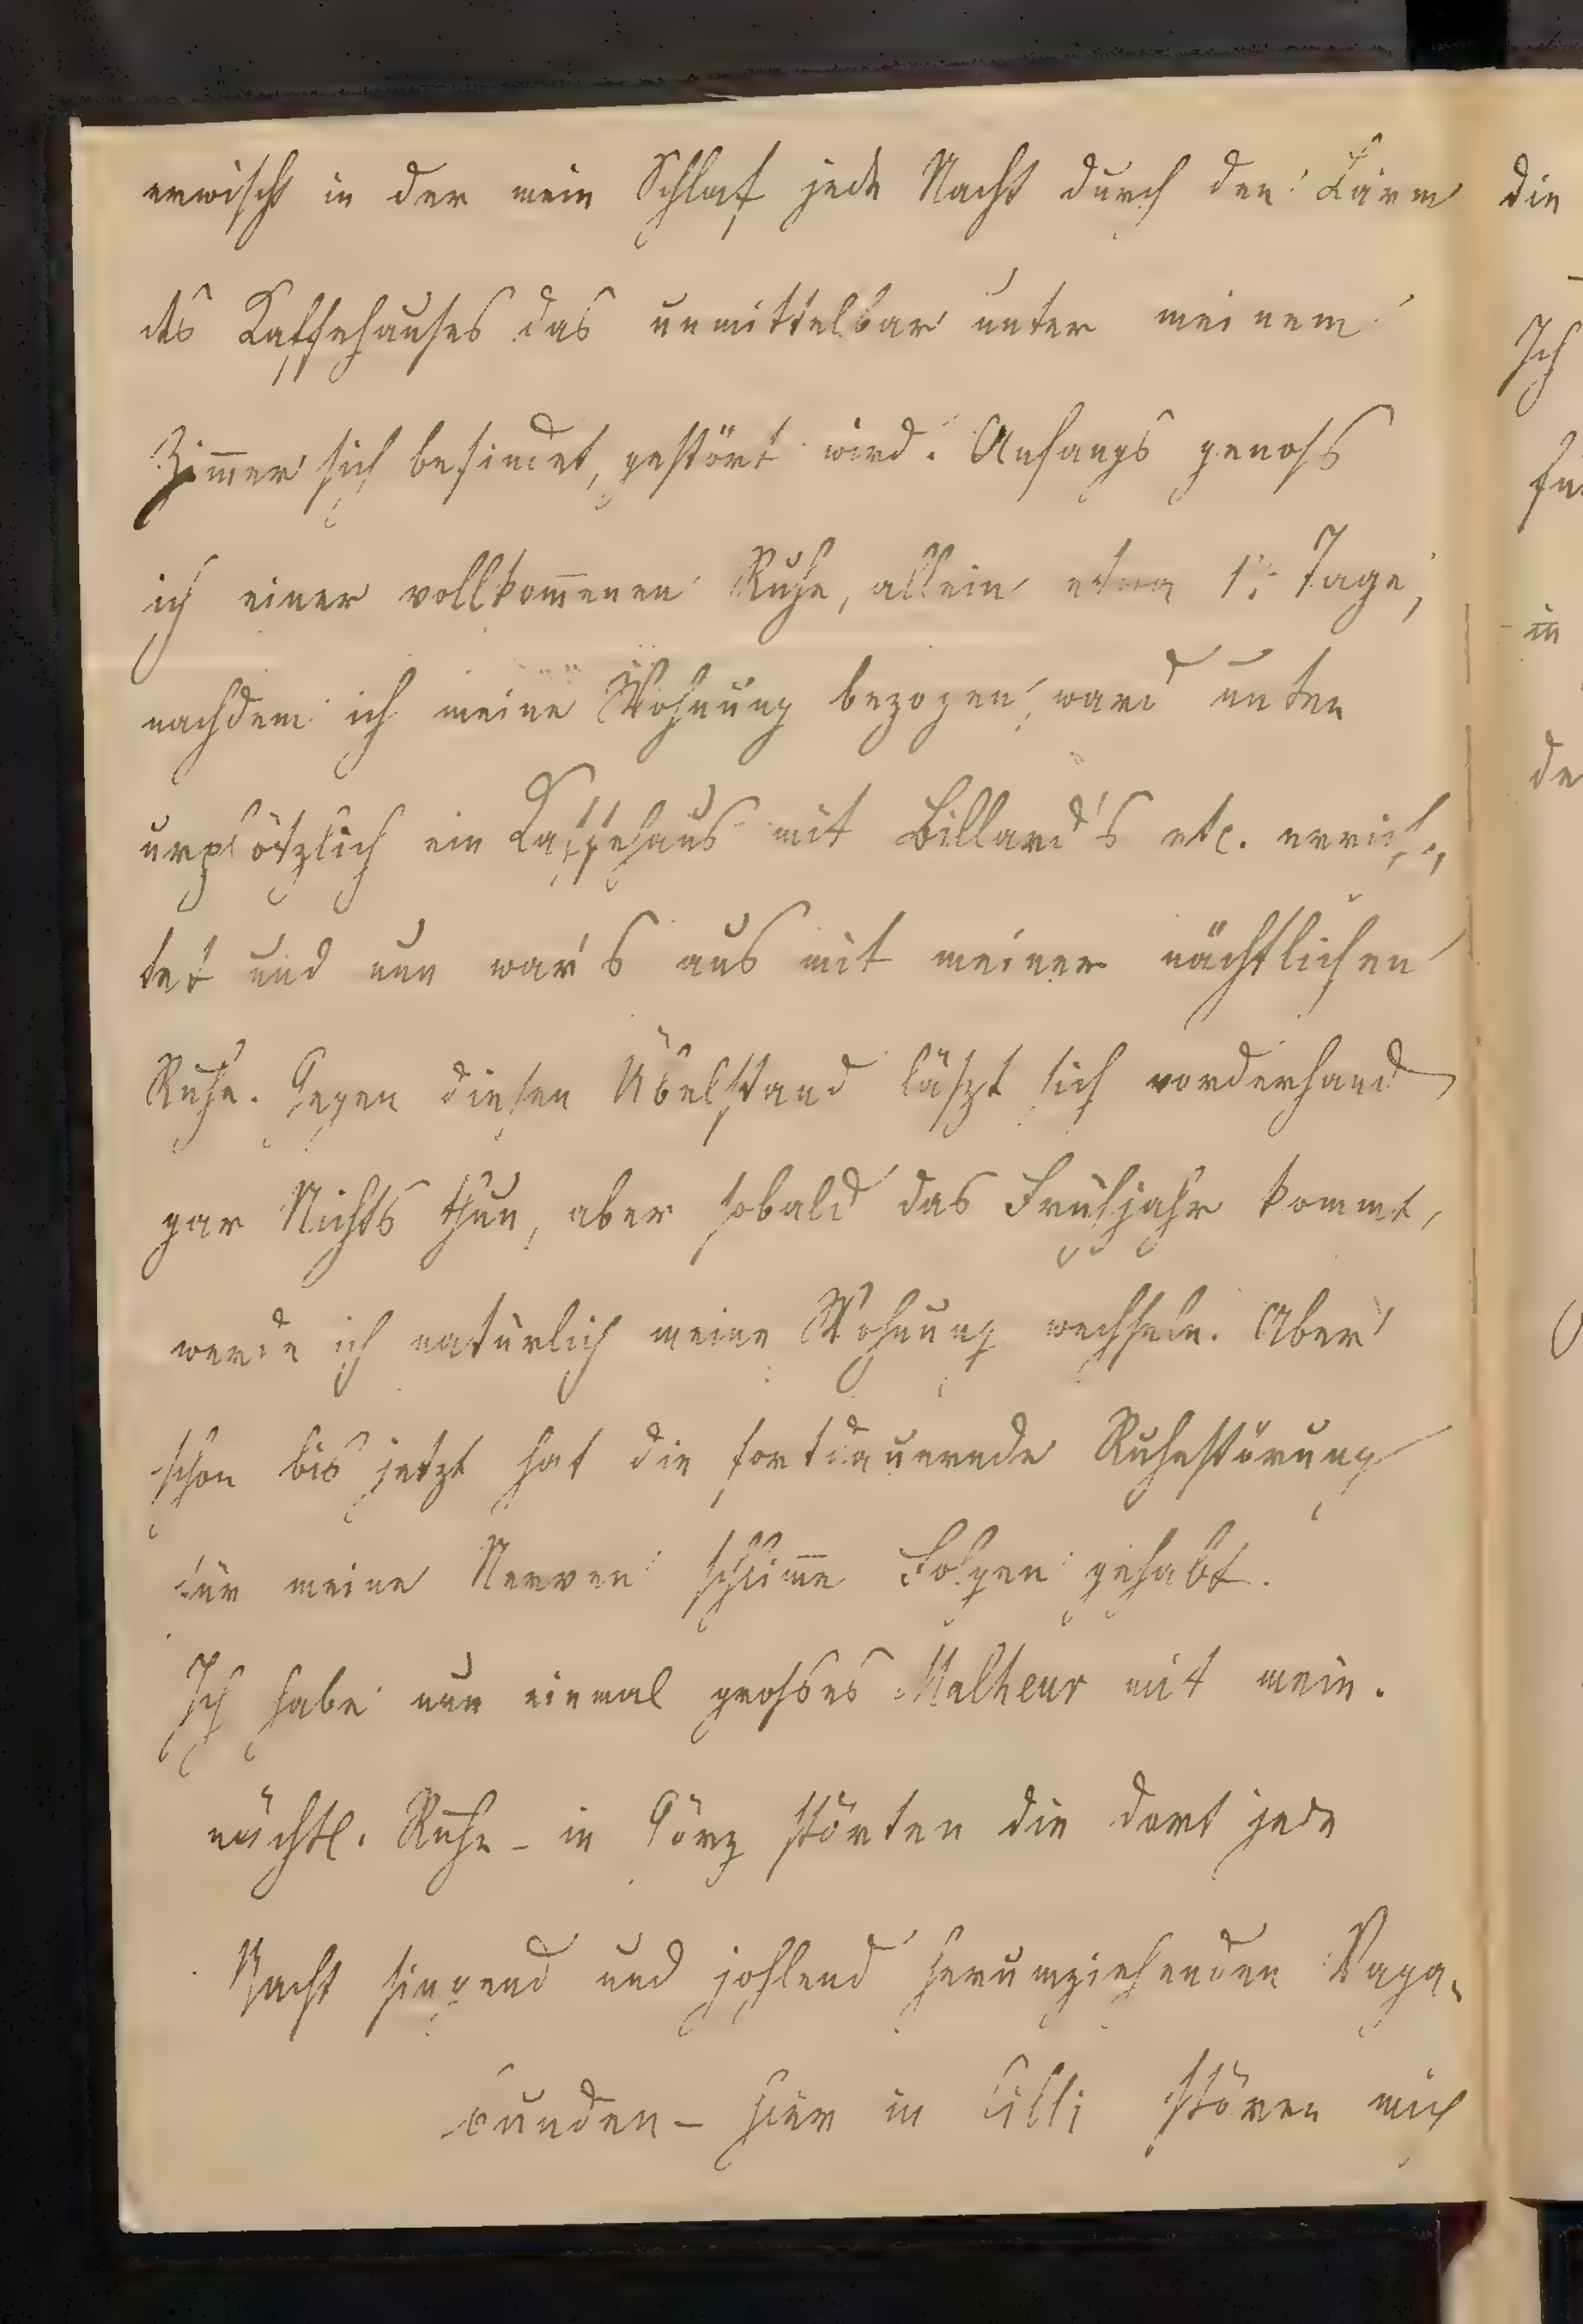 erwischt in der mein Schlaf jede Nacht durch den Lärm
des Kaffehauses das unmittelbar unter meinem
Zim̅er sich befindet, gestört wird. Anfangs genoss
ich einer vollkom̅enen Ruhe, allein etwa Tage,
nachdem ich meine Wohnung bezogen, ward unten
urplötzlich ein Kaffehaus mit Billard's etc. errich„
tet und nun war's aus mit meiner nächtlichen
Ruhe. Gegen diesen Übelstand läszt sich vorderhand
gar Nichts thun, aber sobald das Frühjahr kommt,
werde ich natürlich meine Wohnung wechseln. Aber
schon bis jetzt hat die fortdauernde Ruhestörung
für meine Nerven schlim̅e Folgen gehabt.
Ich habe nun einmal grosses Malheur mit mein.
nächtl. Ruhe – in Görz störten die dort jede
Nacht singend und johlend herumziehenden Vaga„
bunden – hier in Cilli stören mich
die
Ich
in